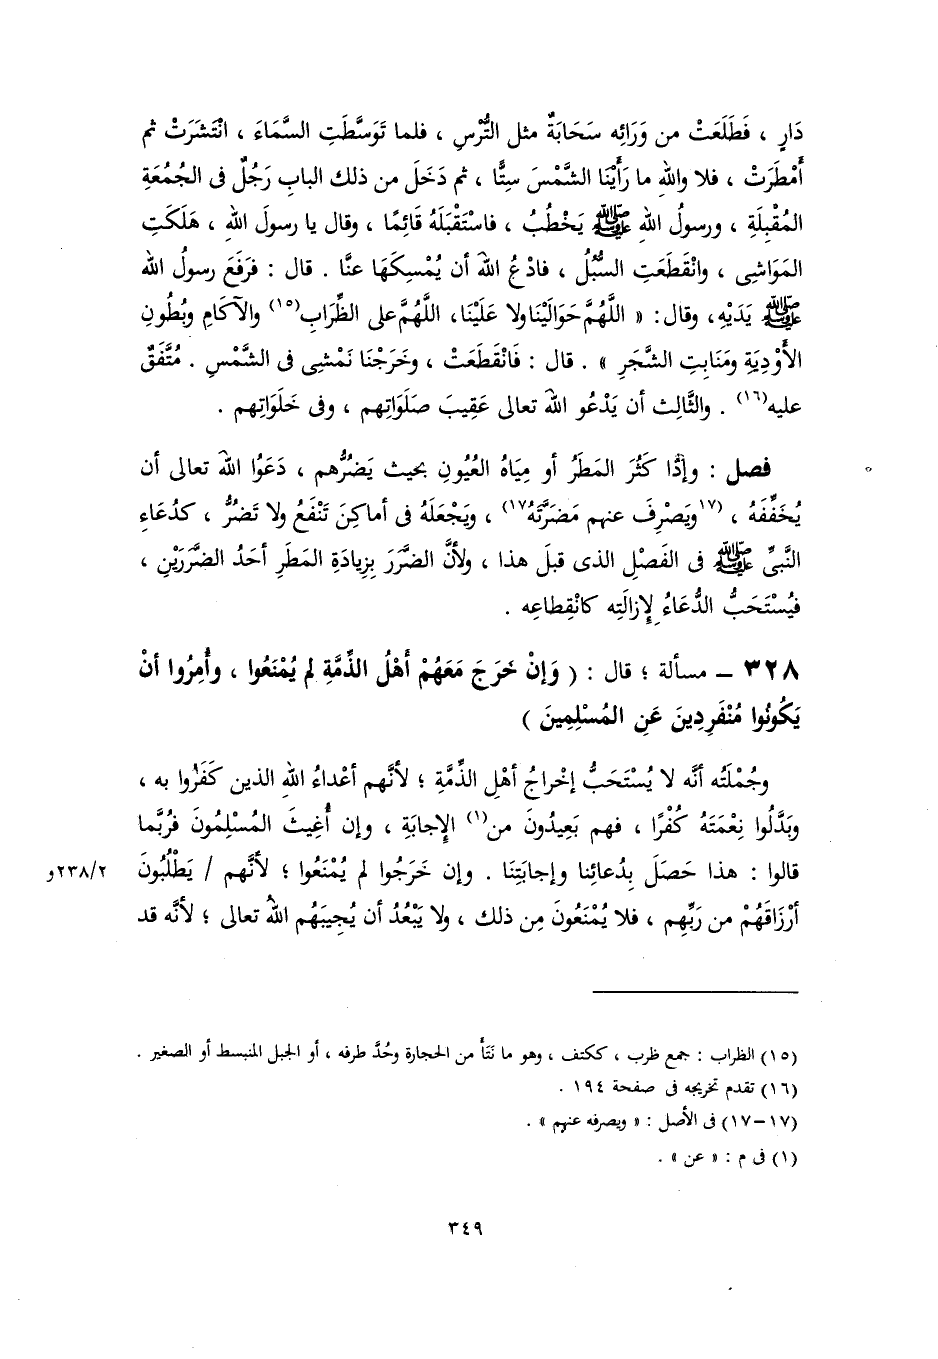 دَارٍ ، فَطَلَعَتْ من وَرَائِه سَحَابَةٌ مثل التُّرْسِ ، فلما تَوَسَّطَتِ السَّمَاءَ ، انْتَشَرَتْ ثم
أَمْطَرَتْ ، فلا واللهِ ما رَأَيْنَا الشَّمْسَ سِتًّا ، ثم دَخَلَ من ذلك البابِ رَجُلٌ فى الجُمُعَةِ
المُقْبِلَةِ ، ورسولُ اللهِ ﷺ يَخْطُبُ ، فاسْتَقْبَلَهُ قَائِمًا ، وقال يا رسولَ اللهِ ، هَلَكَتِ
المَوَاشِى ، وانْقَطَعَتِ السُّبُلُ ، فادْعُ اللهَ أن يُمْسِكَهَا عنَّا . قال : فرَفَعَ رسولُ اللهِ
ﷺ يَدَيْهِ، وقال: « اللَّهُمَّ حَوَالَيْنَا ولا عَلَيْنَا، اللَّهُمَّ على الظِّرَابِ(١٥) والآكَامِ وبُطُونِ
الأَوْدِيَةِ ومَنَابِتِ الشَّجَرِ » . قال : فَانْقَطَعَتْ ، وخَرَجْنَا نَمْشِى فى الشَّمْسِ . مُتَّفَقٌ
عليه(١٦) . والثَّالِث أن يَدْعُو اللهَ تعالى عَقِيبَ صَلَوَاتِهم ، وفى خَلَوَاتِهم .
فصل : وإذا كَثُرَ المَطَرُ أو مِيَاهُ العُيُونِ بحيث يَضُرُّهم ، دَعَوُا اللهَ تعالى أن
يُخَفِّفَهُ ، (١٧ويَصْرِفَ عنهم مَضَرَّتَهُ١٧) ، ويَجْعَلَهُ فى أماكِنَ تَنْفَعُ ولا تَضُرُّ ، كدُعَاءِ
النَّبىِّ ﷺ فى الفَصْلِ الذى قبلَ هذا ، ولأنَّ الضَّرَرَ بِزِيادَةِ المَطَرِ أحَدُ الضَّرَرَيْنِ ،
فيُسْتَحَبُّ الدُّعَاءُ لِإِزالَتِه كانْقِطاعِه .
٣٢٨ – مسألة ؛ قال : ( وَإنْ خَرَجَ مَعَهُمْ أَهْلُ الذِّمَّةِ لم يُمْنَعُوا ، وأُمِرُوا أنْ
يَكُونُوا مُنْفَرِدِينَ عَنِ المُسْلِمِينَ )
وجُمْلَتُه أنَّه لا يُسْتَحَبُّ إخْراجُ أهْلِ الذِّمَّةِ ؛ لأنَّهم أعْداءُ اللهِ الذين كَفَرُوا به ،
وبَدَّلُوا نِعْمَتَهُ كُفْرًا ، فهم بَعِيدُونَ من(١) الإجابَةِ ، وإن أُغِيثَ المُسْلِمُونَ فرُبَّما
قالوا : هذا حَصَلَ بِدُعائِنا وإجابَتِنَا . وإن خَرَجُوا لم يُمْنَعُوا ؛ لأنَّهم / يَطْلُبُونَ ٢٣٨/٢و
أرْزَاقَهُمْ من رَبِّهِم ، فلا يُمْنَعُونَ مِن ذلك ، ولا يَبْعُدُ أن يُجِيبَهُم اللهُ تعالى ؛ لأنَّه قد
(١٥) الظراب : جمع ظرب ، ككتف ، وهو ما نَتَأَ من الحجارة وحُدَّ طرفه ، أو الجبل المنبسط أو الصغير .
(١٦) تقدم تخريجه فى صفحة ١٩٤ .
(١٧-١٧) فى الأصل : « ويصرفه عنهم » .
(١) فى م : « عن » .
٣٤٩